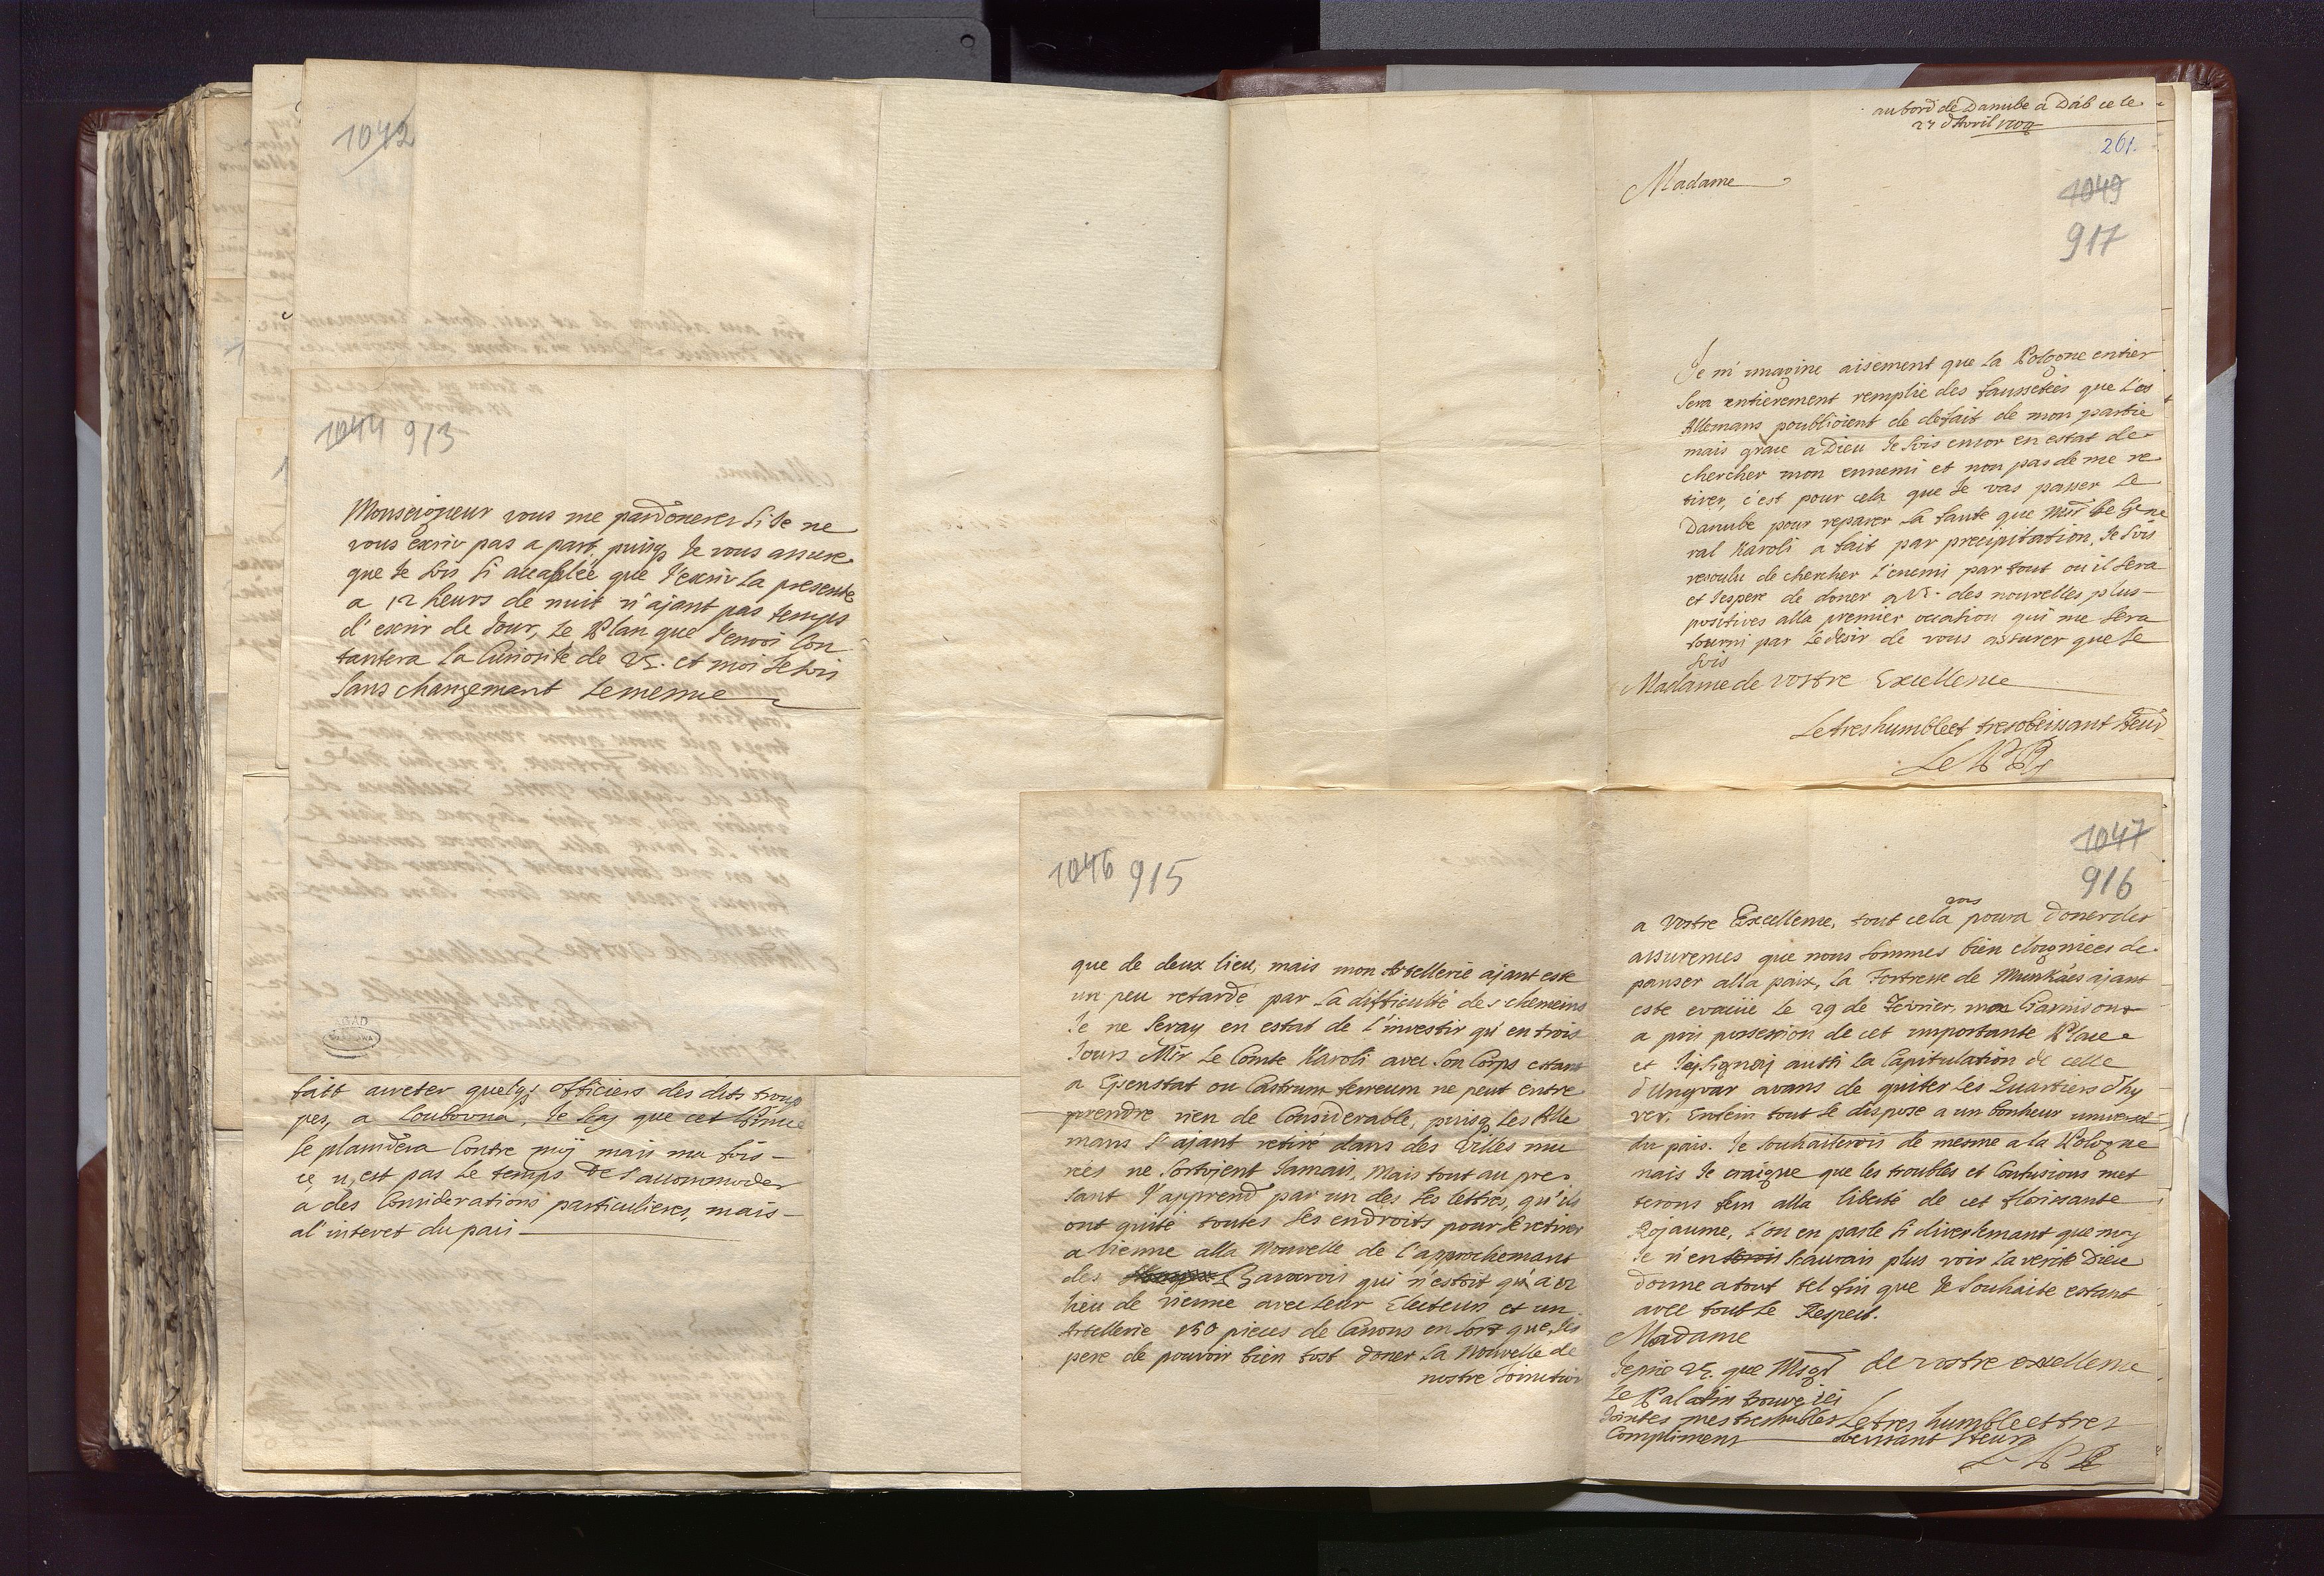 1042
1044 913
Monseigneur vous me pardoneres si Je ne
vous escriv pas a part, puisq Je vous assure
que Je sois si accablée que J'escriv la presente
a 12 heurs de nuit n'ajant pas temps
d'escrir de Jour, Le Plan que J'envoi Con
tantera la Curiosité de VE. et moi Je sois
Sans changemant Lememe
fait arreter quelqs officiers des dits trou
pes, a Loubovna, Je say que cet
se plaindera Contre mij mais ma fois
ce n'est pas Le temps de s'accommoder
a des Considerations particulieres, mais
al'interet du pais
au bord de Danube a Dab ce le
27 d'Avril
261.
Madame
1049
917
Je m'imagine aisement que la Pologne entier
sera entierement remplie des faussetées que les
Allemans poublioient de defait de mon partie
mais grace a Dieu Je sois encor en estat de
chercher mon ennemi et non pas de me re
tirer, c'est pour cela que Je vas passer le
Danube pour reparer la faute que Msr le Gene
ral Karoli a fait par precipitation, Je sois
resoulu de chercher l'enemi par tout ou il sera
et J'espere de doner a VE. des nouvelles plus
positives alla premier occation qui me sera
fourni par Le desir de vous assurer que Je
sois
Madame de vostre Excellence
Le tres humble et tres obeissant
Le P R
1046 915
que de deux lieu, mais mon Artellerie ajant esté
un peu retardé par la difficulté des chemeins
Je ne seray en estat de l'investir qu'en trois
Jours. Msr Le Comte Karoli avec son Corps estant
a Eisenstat ou Castrum ferreum ne peut entre
prendre rien de Considerable, puisq Les Alle
mans s'ajant retiré dans des Villes mu
rées ne sortijent Jamais, Mais tout au pre
sant J'apprend par un des ses lettres, qu'ils
ont quité toutes ses endroits pour se retirer
a Vienne alla Nouvelle de l'approchemant
des Bavarois qui n'estoit qu'a 12
lieu de Vienne avec leur Electeur et un
Artellerie 150 pieces de Canons en sort que J'es
pere de pouvoir bien tost doner la Nouvelle de
nostre
1047
916
vous
a Vostre Excellence, tout cela poura doner des
assurences que nous sommes bien eloignées de
panser alla paix, la Fortresse de Munkács ajant
esté evacué le 29 de Fevrier, mon Garnison
a pris possession de cet importante Place
et J'ej signeij aussi la Capitulation de celle
d'Ungvar avans de quiter les Quartiers d'hy
ver, Enfein tout se dispose a un bonheur universel
du pais. Je souhaiterois de mesme a la Pologne
mais Je craigne que les troubles et Confusions met
terons fein alla liberté de cet florissante
Rojaume, l'on en parle si diversemant que moy
Je n'en saurais plus voir la verité Dieu
donne a tout tel fin que Je souhaite estant
avec tout le Respect.
Madame
de vostre excellence
Je prie VE. que
Le Palatin trouve ici
Jointes mes tres humbles
Compliments
Le tres humble et tres
obeissant
Le P R